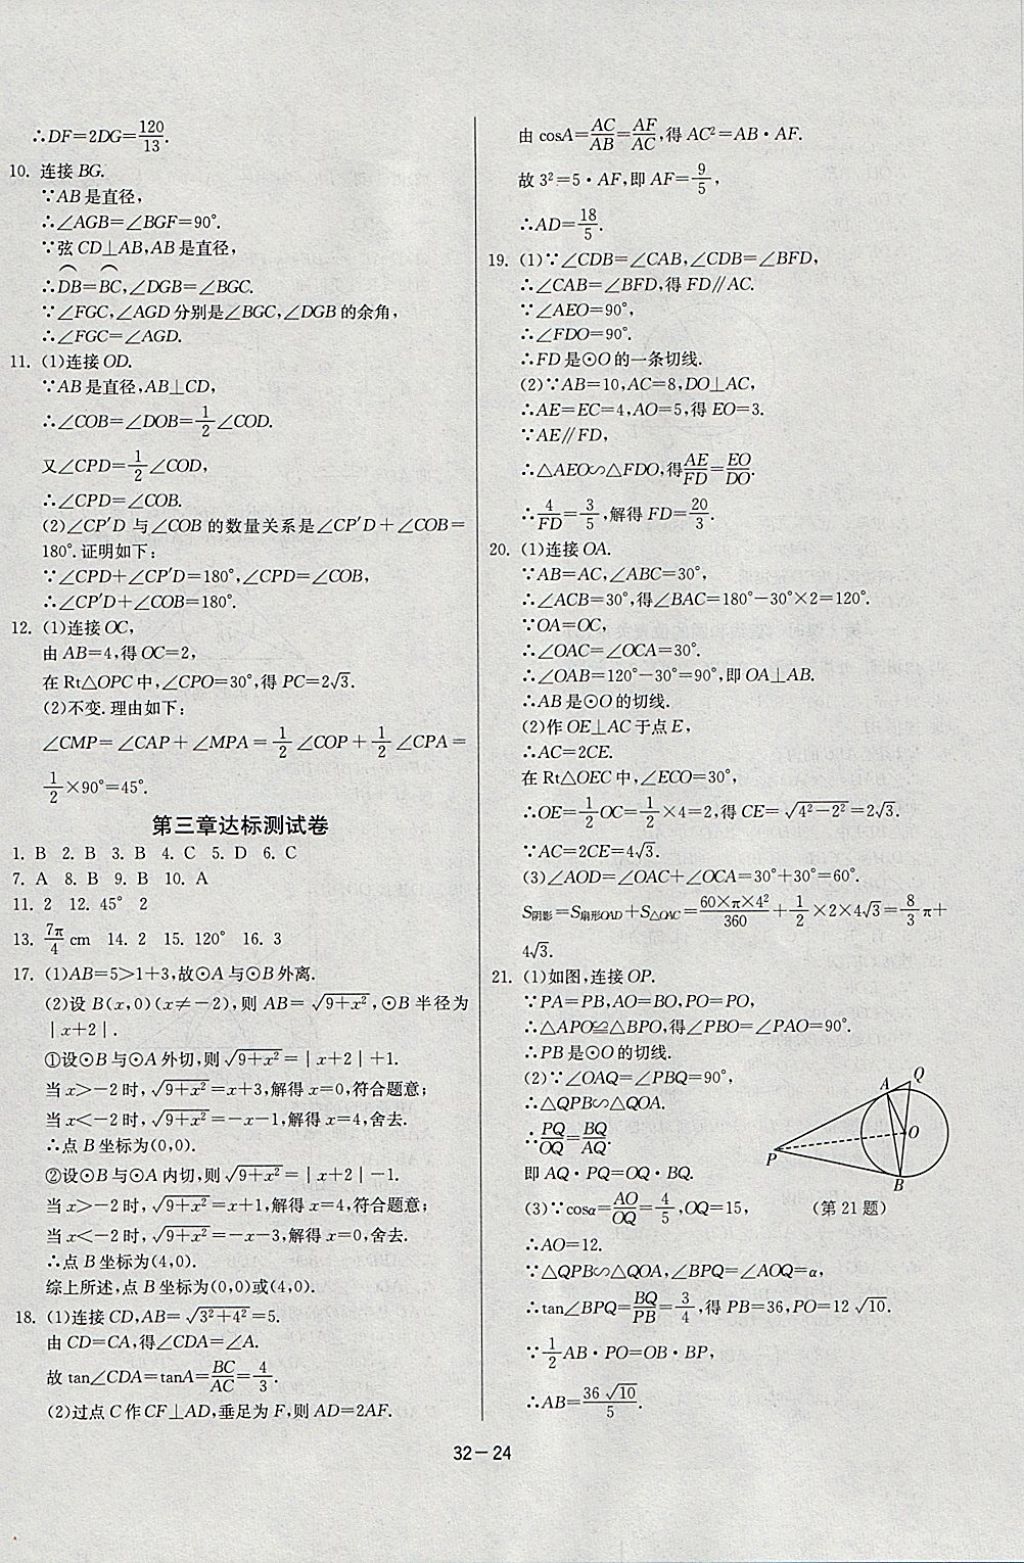 ∴DF=2DG=120/13.
10. 连接 BG.
∵AB 是直径,
∴∠AGB=∠BGF=90°.
∵弦 CD⊥AB,AB 是直径,
∴D͡B=B͡C,∠DGB=∠BGC.
∵∠FGC,∠AGD 分别是∠BGC,∠DGB 的余角,
∴∠FGC=∠AGD.
11. (1)连接 OD.
∵AB 是直径,AB⊥CD,
∴∠COB=∠DOB=1/2∠COD.
又∠CPD=1/2∠COD,
∴∠CPD=∠COB.
(2)∠CP′D 与∠COB 的数量关系是∠CP′D+∠COB=
180°.证明如下:
∵∠CPD+∠CP′D=180°,∠CPD=∠COB,
∴∠CP′D+∠COB=180°.
12. (1)连接 OC,
由 AB=4,得 OC=2,
在 Rt△OPC 中,∠CPO=30°,得 PC=2√3.
(2)不变.理由如下:
∠CMP=∠CAP+∠MPA=1/2∠COP+1/2∠CPA=
1/2×90°=45°.
第三章达标测试卷
1. B 2. B 3. B 4. C 5. D 6. C
7. A 8. B 9. B 10. A
11. 2 12. 45° 2
13. 7π/4 cm 14. 2 15. 120° 16. 3
17. (1)AB=5>1+3,故⊙A 与⊙B 外离.
(2)设 B(x,0)(x≠−2),则 AB=√(9+x²),⊙B 半径为
|x+2|.
①设⊙B 与⊙A 外切,则√(9+x²)=|x+2|+1.
当 x>−2 时,√(9+x²)=x+3,解得 x=0,符合题意;
当 x<−2 时,√(9+x²)=−x−1,解得 x=4,舍去.
∴点 B 坐标为(0,0).
②设⊙B 与⊙A 内切,则√(9+x²)=|x+2|−1.
当 x>−2 时,√(9+x²)=x+1,解得 x=4,符合题意;
当 x<−2 时,√(9+x²)=−x−3,解得 x=0,舍去.
∴点 B 坐标为(4,0).
综上所述,点 B 坐标为(0,0)或(4,0).
18. (1)连接 CD,AB=√(3²+4²)=5.
由 CD=CA,得∠CDA=∠A.
故 tan∠CDA=tanA=BC/AC=4/3.
(2)过点 C 作 CF⊥AD,垂足为 F,则 AD=2AF.
由 cosA=AC/AB=AF/AC,得 AC²=AB·AF.
故 3²=5·AF,即 AF=9/5,
∴AD=18/5.
19. (1)∵∠CDB=∠CAB,∠CDB=∠BFD,
∴∠CAB=∠BFD,得 FD∥AC.
∵∠AEO=90°,
∴∠FDO=90°.
∴FD 是⊙O 的一条切线.
(2)∵AB=10,AC=8,DO⊥AC,
∴AE=EC=4,AO=5,得 EO=3.
∵AE∥FD,
∴△AEO∽△FDO,得AE/FD=EO/DO.
∴4/FD=3/5,解得 FD=20/3.
20. (1)连接 OA.
∵AB=AC,∠ABC=30°,
∴∠ACB=30°,得∠BAC=180°−30°×2=120°.
∵OA=OC,
∴∠OAC=∠OCA=30°.
∴∠OAB=120°−30°=90°,即 OA⊥AB.
∴AB 是⊙O 的切线.
(2)作 OE⊥AC 于点 E,
∴AC=2CE.
在 Rt△OEC 中,∠ECO=30°,
∴OE=1/2OC=1/2×4=2,得 CE=√(4²−2²)=2√3.
∵AC=2CE=4√3.
(3)∠AOD=∠OAC+∠OCA=30°+30°=60°.
S阴影=S扇形OAD+S△OAC=60×π×4²/360+1/2×2×4√3=8/3π+
4√3.
21. (1)如图,连接 OP.
∵PA=PB,AO=BO,PO=PO,
∴△APO≌△BPO,得∠PBO=∠PAO=90°.
∴PB 是⊙O 的切线.
(2)∵∠OAQ=∠PBQ=90°,
∴△QPB∽△QOA.
∴PQ/OQ=BQ/AQ.
即 AQ·PQ=OQ·BQ.
(3)∵cosα=AO/OQ=4/5,OQ=15,
∴AO=12.
∵△QPB∽△QOA,∠BPQ=∠AOQ=α,
∴tan∠BPQ=BQ/PB=3/4,得 PB=36,PO=12√10.
∵1/2AB·PO=OB·BP,
∴AB=36√10/5.
Q
A
O
P
B
(第 21 题)
32−24